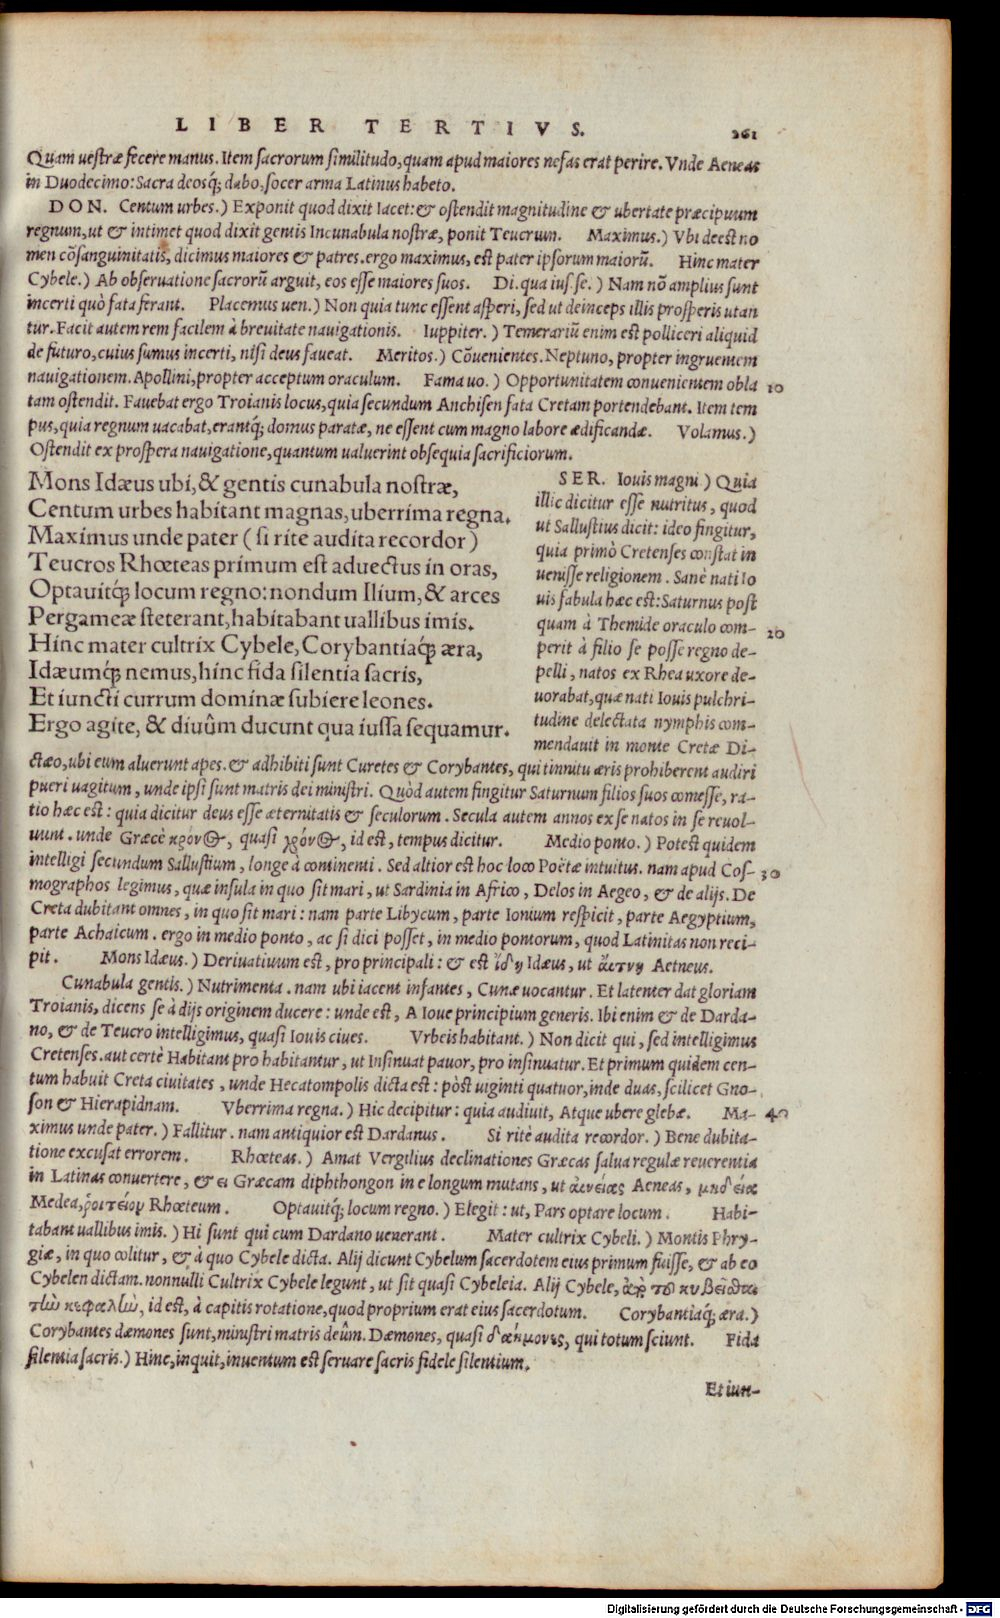 LIBER TERTIVS. 261
Quam uestræ fecere manus. Item sacrorum similitudo, quam apud maiores nefas erat perire. Vnde Aeneas
in Duodecimo: Sacra deosq́; dabo, socer arma Latinus habeto.
DON. Centum urbes.) Exponit quod dixit Iacet: & ostendit magnitudine & ubertate præcipuum
regnum, ut & intimet quod dixit gentis Incunabula nostræ, ponit Teucrum. Maximus.) Vbi deest no
men cõsanguinitatis, dicimus maiores & patres. ergo maximus, est pater ipsorum maiorũ. Hinc mater
Cybele.) Ab obseruatione sacrorũ arguit, eos esse maiores suos. Di. qua ius. se.) Nam nõ amplius sunt
incerti quò fata ferant. Placemus uen.) Non quia tunc essent asperi, sed ut deinceps illis prosperis utan
tur. Facit autem rem facilem à breuitate nauigationis. Iuppiter.) Temerariũ enim est polliceri aliquid
de futuro, cuius sumus incerti, nisi deus faueat. Meritos.) Cõuenientes. Neptuno, propter ingruentem
nauigationem. Apollini, propter acceptum oraculum. Fama uo.) Opportunitatem conuenientem obla 10
tam ostendit. Fauebat ergo Troianis locus, quia secundum Anchisen fata Cretam portendebant. Item tem
pus, quia regnum uacabat, erantq́; domus paratæ, ne essent cum magno labore ædificandæ. Volamus.)
Ostendit ex prospera nauigatione, quantum ualuerint obsequia sacrificiorum.
Mons Idæus ubi, & gentis cunabula nostræ,
Centum urbes habitant magnas, uberrima regna.
Maximus unde pater (si rite audita recordor)
Teucros Rhœteas primum est aduectus in oras,
Optauitq́; locum regno: nondum Ilium, & arces
Pergameæ steterant, habitabant uallibus imis.
Hinc mater cultrix Cybele, Corybantiaq́; æra,
Idæumq́; nemus, hinc fida silentia sacris,
Et iuncti currum dominæ subiere leones.
Ergo agite, & diuûm ducunt qua iussa sequamur.
SER. Iouis magni) Quia
illic dicitur esse nutritus, quod
ut Sallustius dicit: ideo fingitur,
quia primò Cretenses constat in
uenisse religionem. Sanè nati Io
uis fabula hæc est: Saturnus post
quam à Themide oraculo com- 20
perit à filio se posse regno de-
pelli, natos ex Rhea uxore de-
uorabat, quæ nati Iouis pulchri-
tudine delectata nymphis com-
mendauit in monte Cretæ Di-
ctæo, ubi eum aluerunt apes. & adhibiti sunt Curetes & Corybantes, qui tinnitu æris prohiberent audiri
pueri uagitum, unde ipsi sunt matris dei ministri. Quòd autem fingitur Saturnum filios suos comesse, ra-
tio hæc est: quia dicitur deus esse æternitatis & seculorum. Secula autem annos ex se natos in se reuol-
uunt. unde Græcè κρόνος, quasi χρόνος, id est, tempus dicitur. Medio ponto.) Potest quidem
intelligi secundum Sallustium, longe à continenti. Sed altior est hoc loco Poëtæ intuitus. nam apud Cos- 30
mographos legimus, quæ insula in quo sit mari, ut Sardinia in Africo, Delos in Aegeo, & de alijs. De
Creta dubitant omnes, in quo sit mari: nam parte Libycum, parte Ionium respicit, parte Aegyptium,
parte Achaicum. ergo in medio ponto, ac si dici posset, in medio pontorum, quod Latinitas non reci-
pit. Mons Idæus.) Deriuatiuum est, pro principali: & est ἴδη Idæus, ut ἄετνη Aetneus.
Cunabula gentis.) Nutrimenta. nam ubi iacent infantes, Cunæ uocantur. Et latenter dat gloriam
Troianis, dicens se à dijs originem ducere: unde est, A Ioue principium generis. Ibi enim & de Darda-
no, & de Teucro intelligimus, quasi Iouis ciues. Vrbeis habitant.) Non dicit qui, sed intelligimus
Cretenses. aut certè Habitant pro habitantur, ut Insinuat pauor, pro insinuatur. Et primum quidem cen-
tum habuit Creta ciuitates, unde Hecatompolis dicta est: pòst uiginti quatuor, inde duas, scilicet Gno-
son & Hierapidnam. Vberrima regna.) Hic decipitur: quia audiuit, Atque ubere glebæ. Ma- 40
ximus unde pater.) Fallitur. nam antiquior est Dardanus. Si ritè audita recordor.) Bene dubita-
tione excusat errorem. Rhœteas.) Amat Vergilius declinationes Græcas salua regulæ reuerentia
in Latinas conuertere, & ει Græcam diphthongon in e longum mutans, ut αἰνείας Aeneas, μηδεία
Medea, ῥοιτείον Rhœteum. Optauitq́; locum regno.) Elegit: ut, Pars optare locum. Habi-
tabant uallibus imis.) Hi sunt qui cum Dardano uenerant. Mater cultrix Cybeli.) Montis Phry-
giæ, in quo colitur, & à quo Cybele dicta. Alij dicunt Cybelum sacerdotem eius primum fuisse, & ab eo
Cybelen dictam. nonnulli Cultrix Cybele legunt, ut sit quasi Cybeleia. Alij Cybele, ἀπὸ τοῦ κυβεῖσθαι
τὴν κεφαλὴν, id est, à capitis rotatione, quod proprium erat eius sacerdotum. Corybantiaq́; æra.)
Corybantes dæmones sunt, ministri matris deûm. Dæmones, quasi δαήμονες, qui totum sciunt. Fida
silentia sacris.) Hinc, inquit, inuentum est seruare sacris fidele silentium.
Et iun-
Digitalisierung gefördert durch die Deutsche Forschungsgemeinschaft - DFG